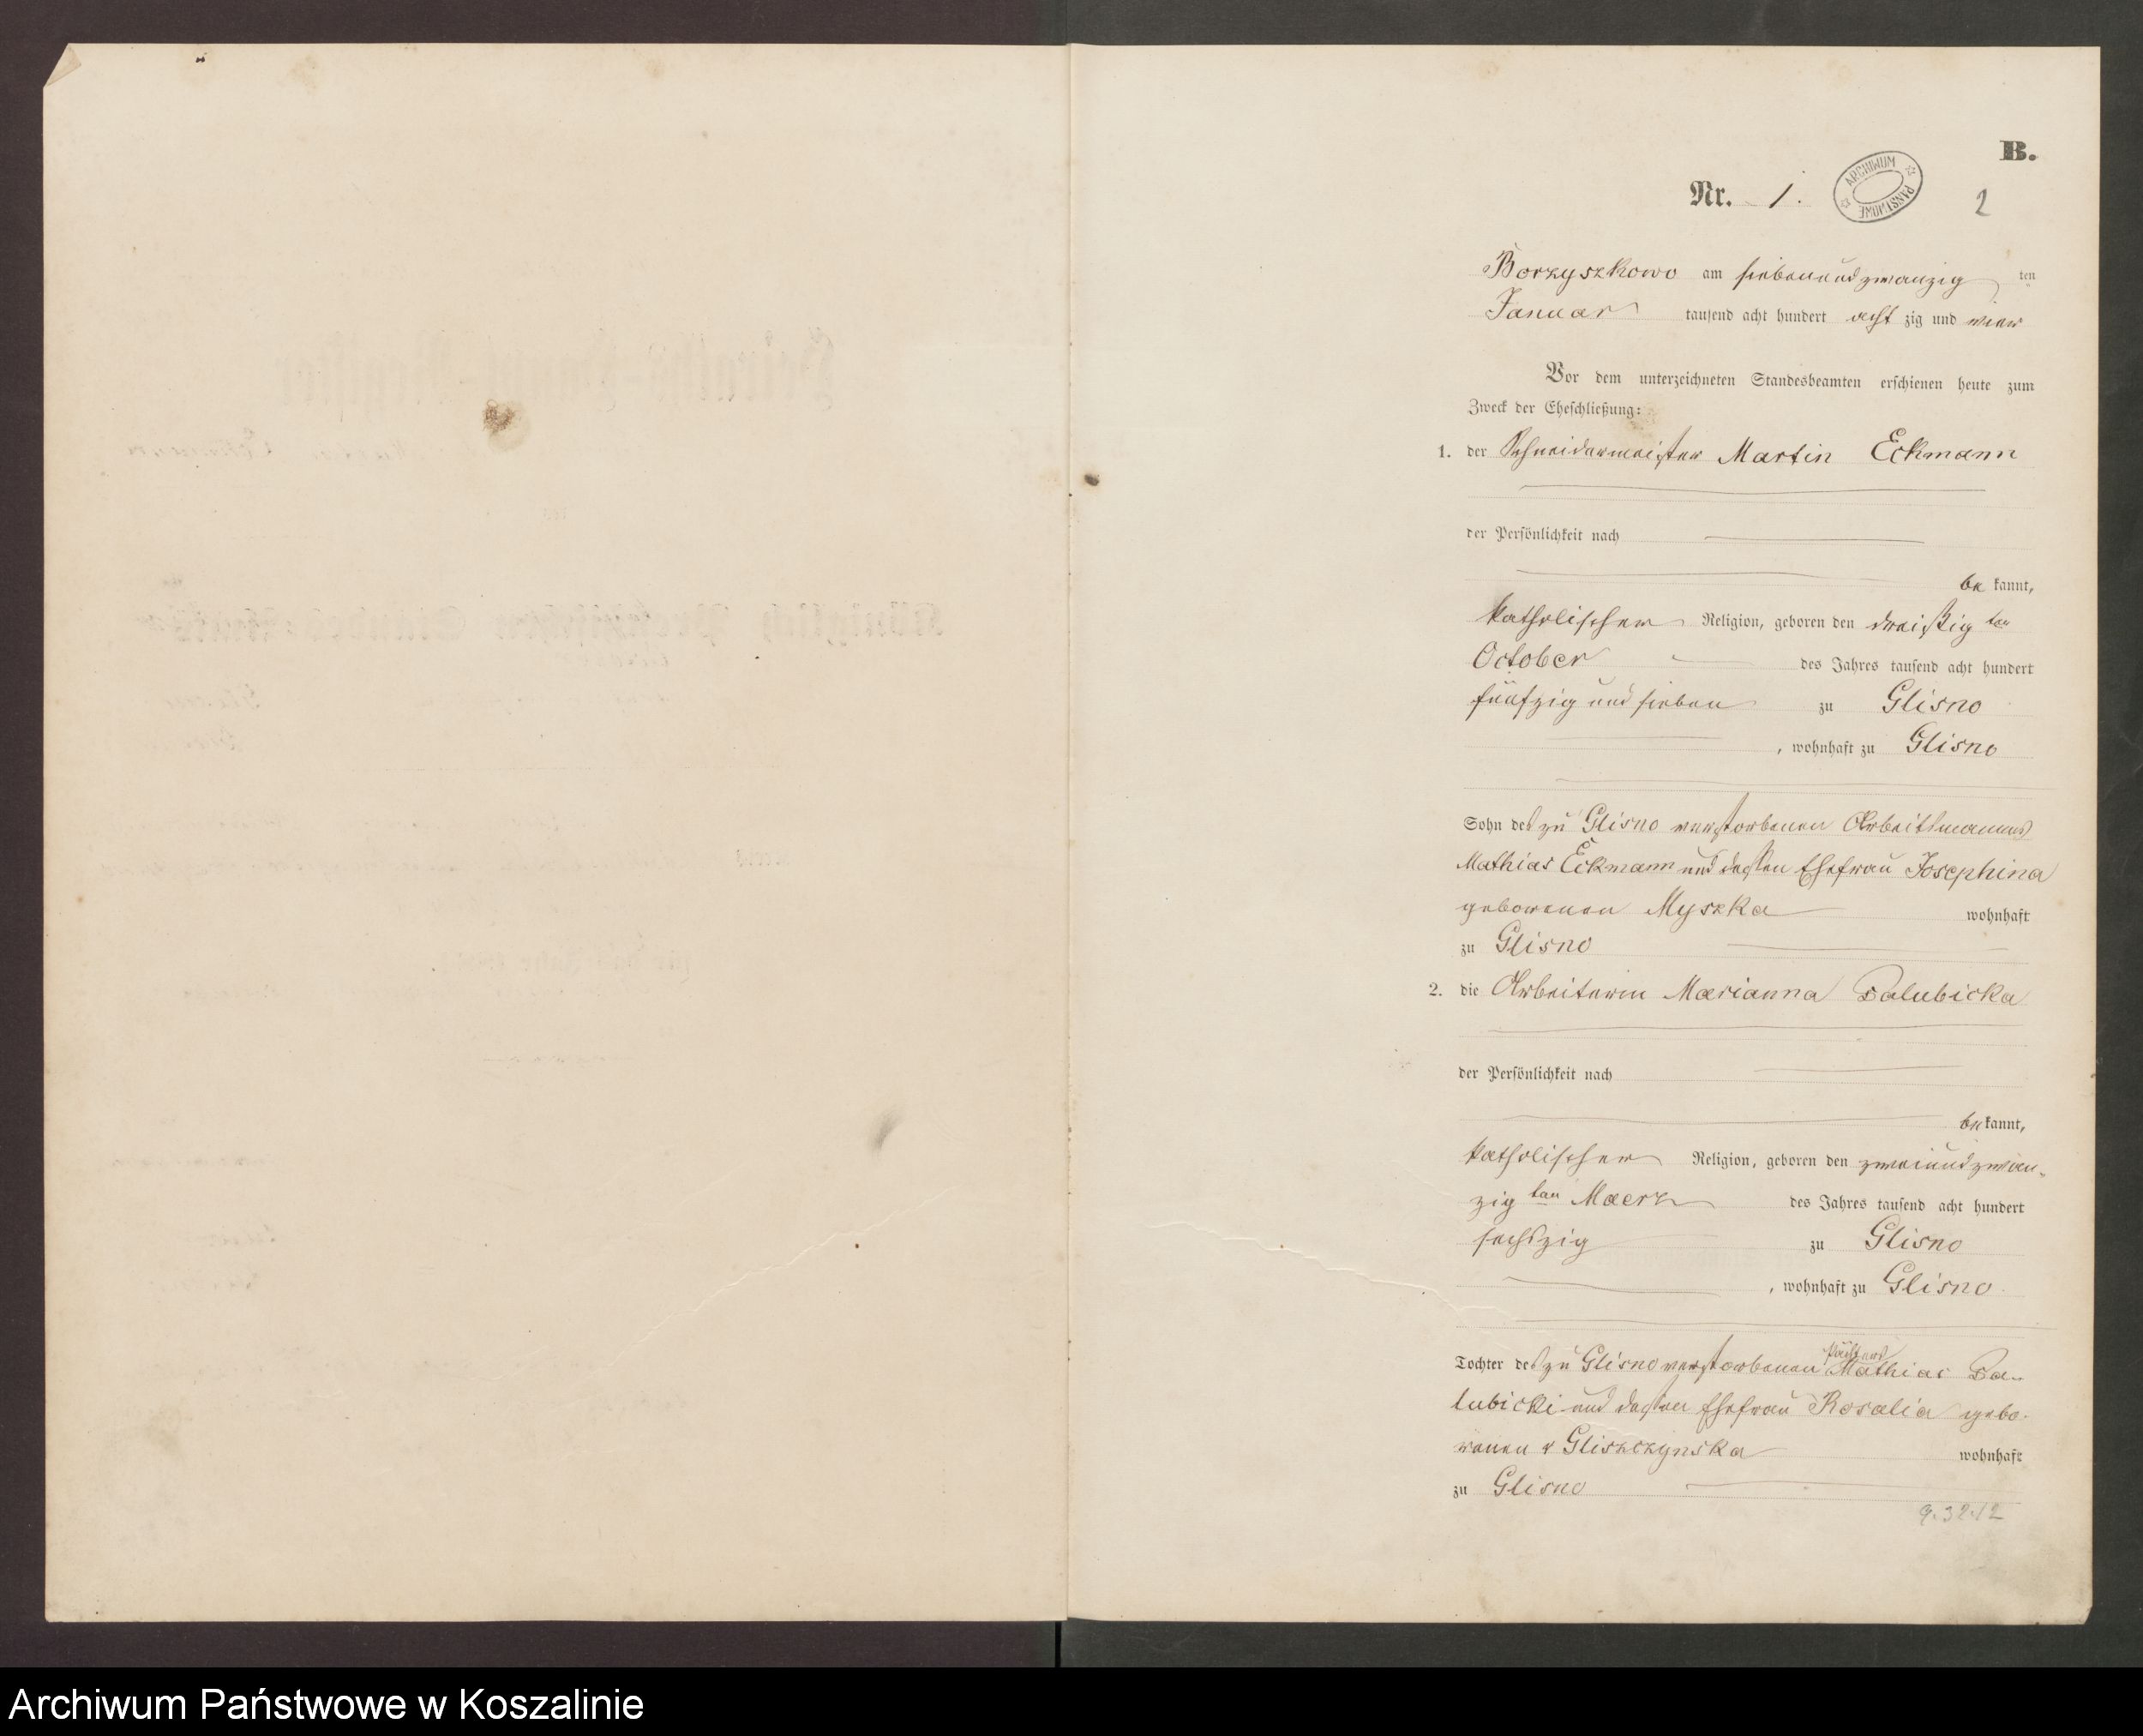 B.
Nr. 1.
ARCHIWUM PAŃSTWOWE
2
Borzyszkowo am siebenundzwanzig ten
Januar tausend acht hundert acht zig und vier
Vor dem unterzeichneten Standesbeamten erschienen heute zum
Zweck der Eheschließung:
1. der Schneidermeister Martin Eckmann
der Persönlichkeit nach
be kannt,
katholischer Religion, geboren den dreißig ten
October des Jahres tausend acht hundert
fünfzig und sieben zu Glisno
, wohnhaft zu Glisno
Sohn des zu Glisno verstorbenen Arbeitsmannes
Mathias Eckmann und dessen Ehefrau Josephina
geborenen Myszka wohnhaft
zu Glisno
2. die Arbeiterin Marianna Balubicka
der Persönlichkeit nach
be kannt,
katholischer Religion, geboren den zweiundzwan-
zig ten Maerz des Jahres tausend acht hundert
sechszig zu Glisno
, wohnhaft zu Glisno
Tochter des zu Glisno verstorbenen Pächters Mathias Ba-
lubicki und dessen Ehefrau Rosalia gebo-
renen v Gliszczynska wohnhaft
zu Glisno
Archiwum Państwowe w Koszalinie